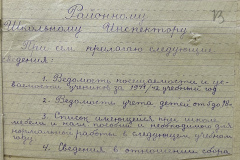 Районному
Школьному Инспектору
При сем прилагаю следующие
сведения:
1. Ведомость посещаемости и ус-
певаемости учеников за учебный год
2. Ведомость учета детей от до
3. Список имеющейся еще школе
мебели и пособий и необходимой для
нормальной работы в следующем учебном
году.
4. Сведения в отношении сбора